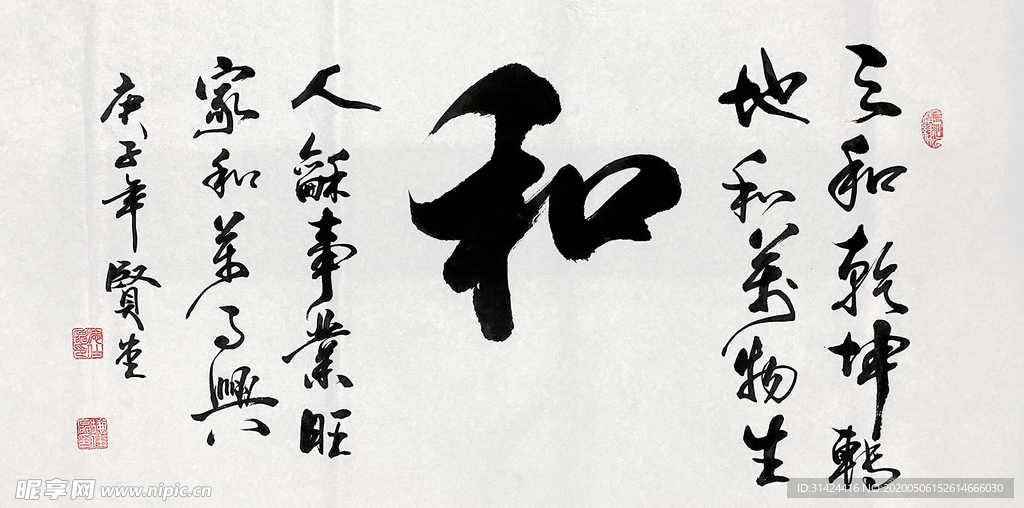 天和乾坤轉
地和萬物生
和
人龢事業旺
家和萬事興
庚子年賢
昵享网 www.nipic.cn
ID:31424416 NO:20200506152614666030